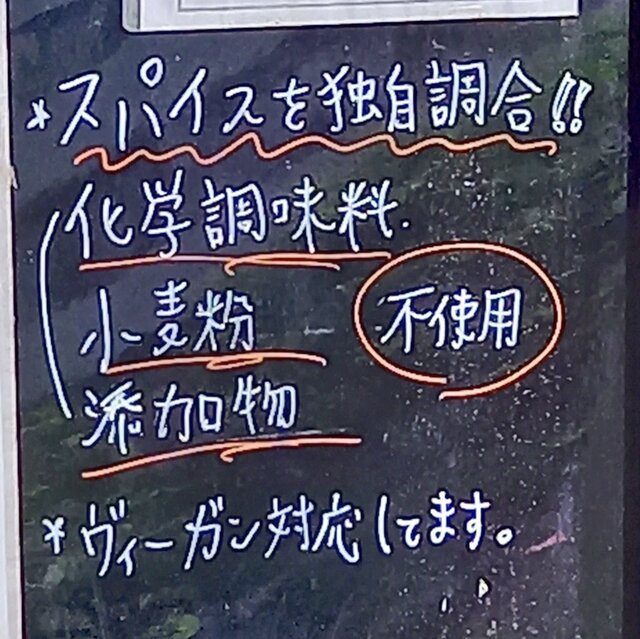 *スパイスを独自調合!!
化学調味料
小麦粉 不使用
添加物
*ヴィーガン対応してます。